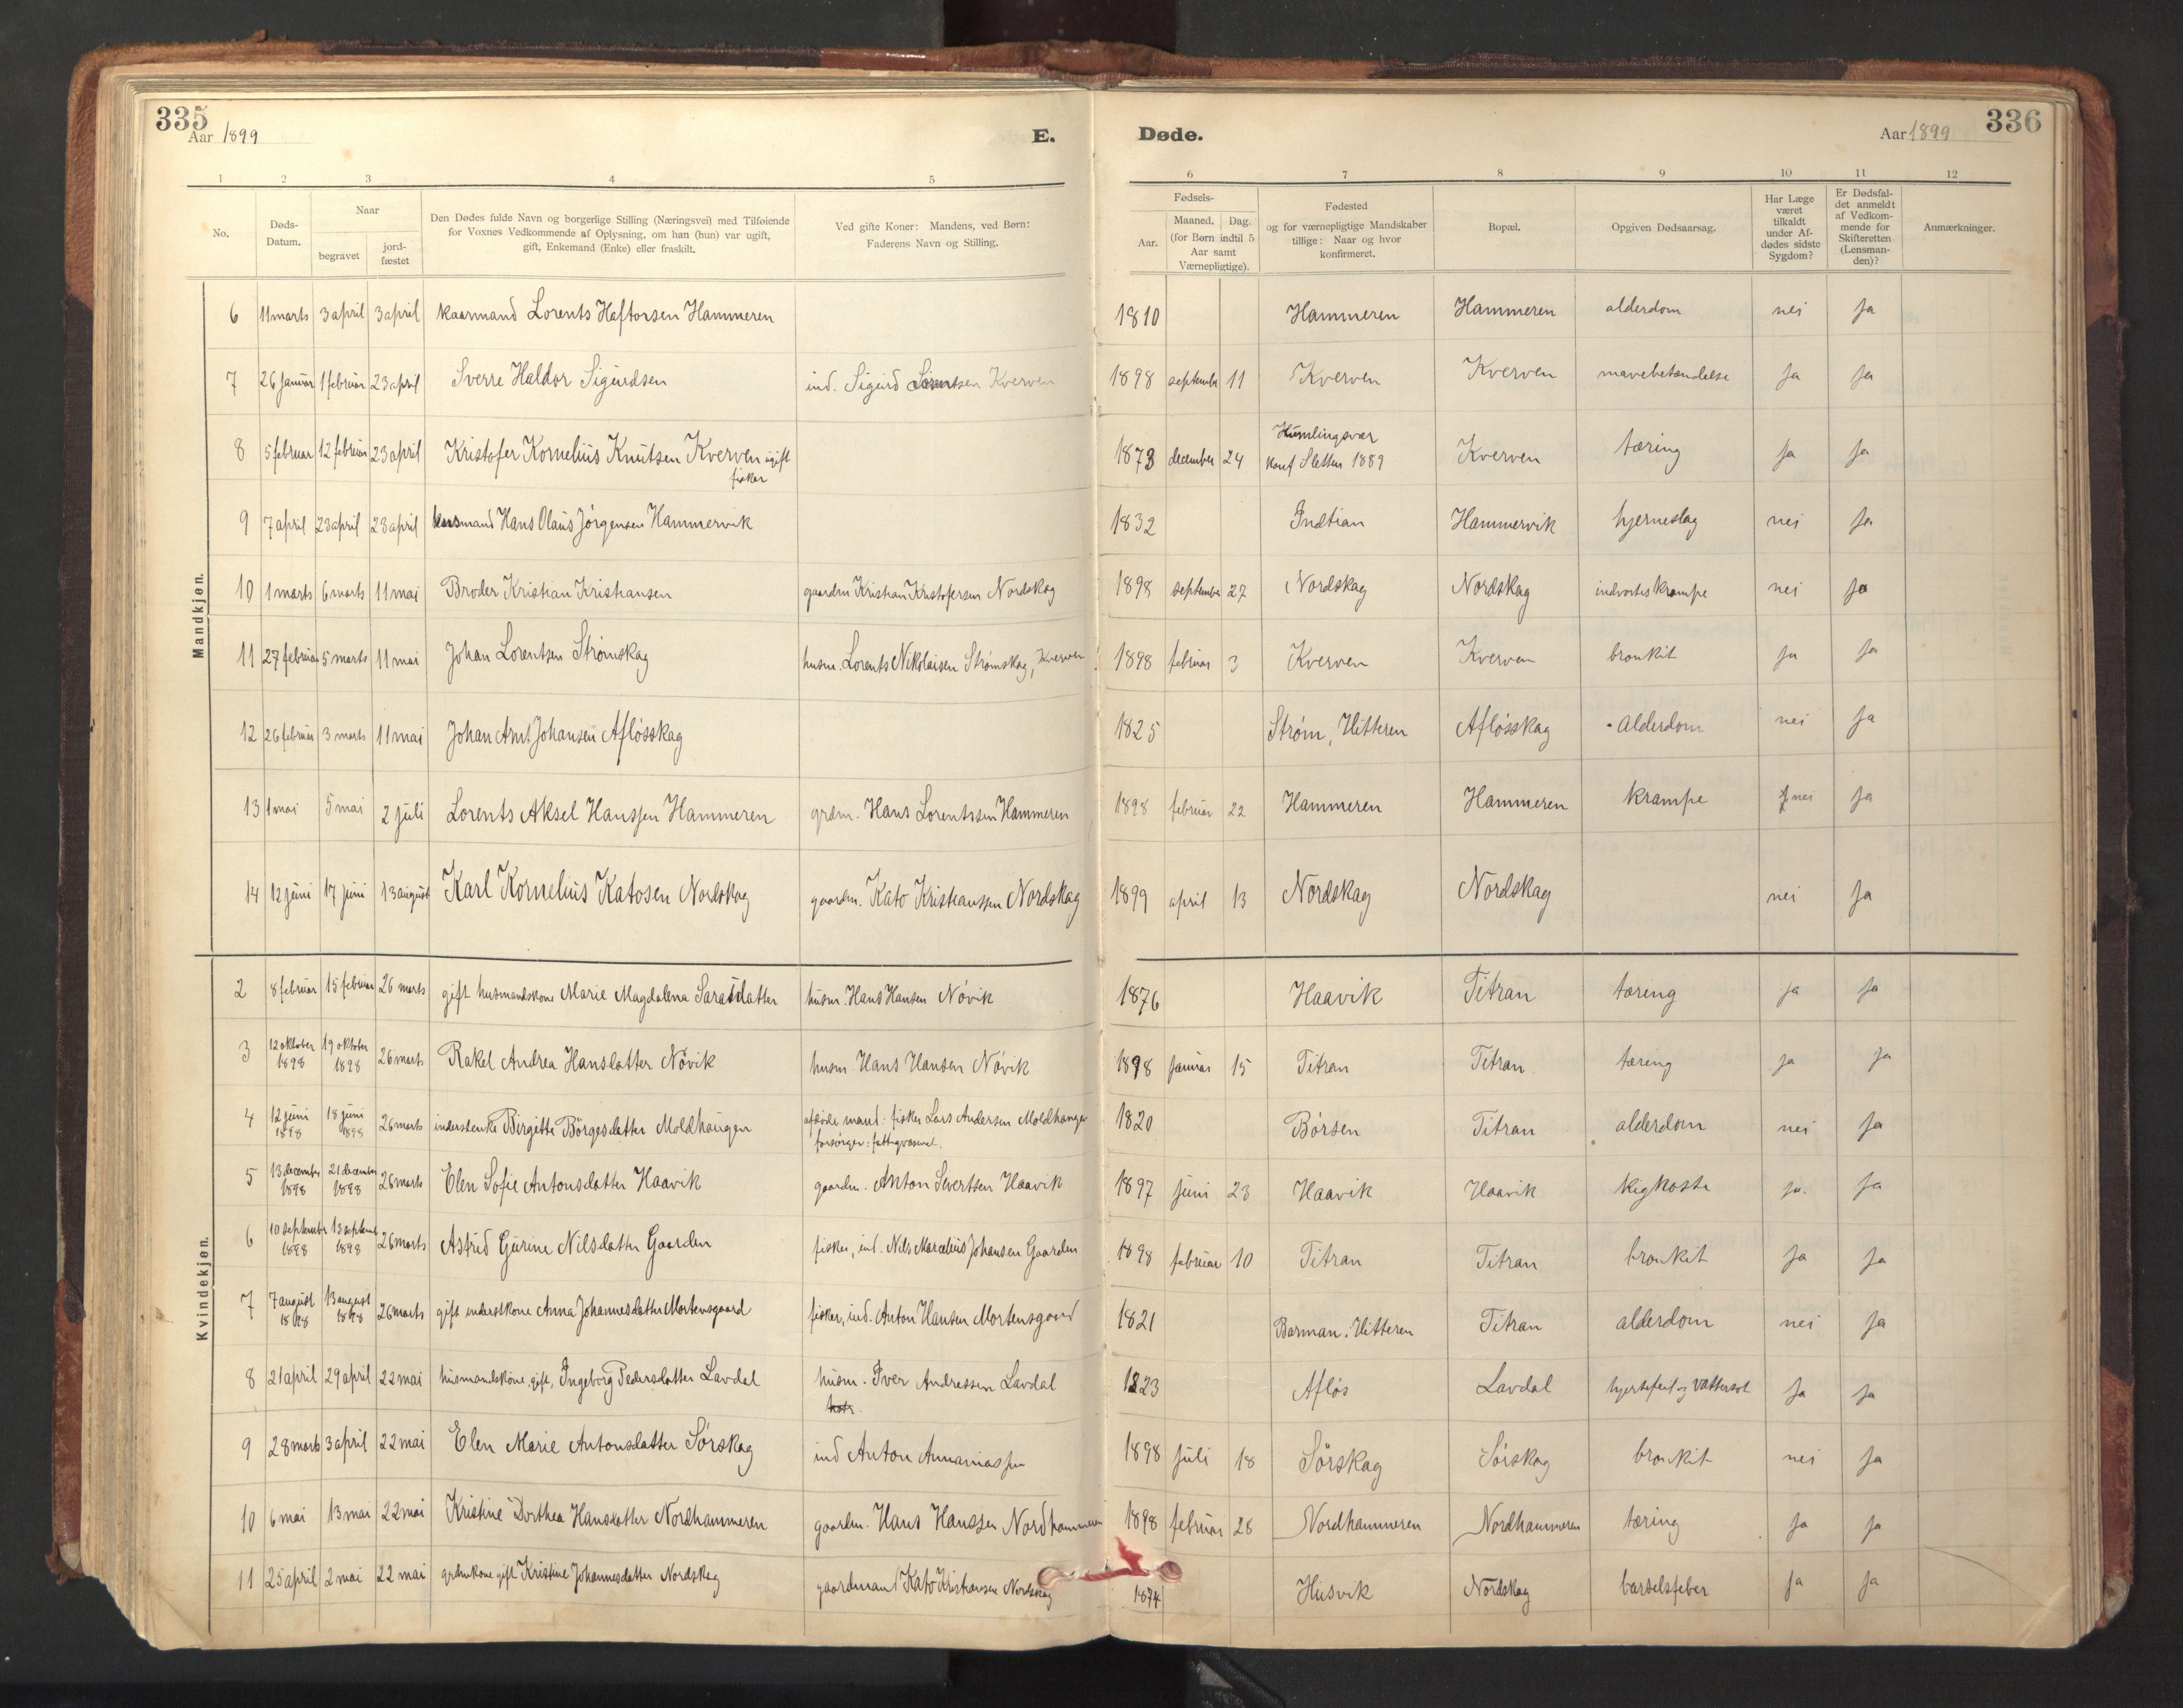 335
Aar 1899
E.
Døde.
Aar 1899
336
1 2 3 4 5 6 7 8 9 10 11 12
No.
Døds-Datum.
Naar
begravet
jord-fæstet
Den Dødes fulde Navn og borgerlige Stilling (Næringsvei) med Tilføiende
for Voxnes Vedkommende af Oplysning, om han (hun) var ugift,
gift, Enkemand (Enke) eller fraskilt.
Ved gifte Koner: Mandens, ved Børn:
Faderens Navn og Stilling.
Fødsels-
Aar.
Maaned.
Dag.
(for Børn indtil 5
Aar samt
Værnepligtige).
Fødested
og for værnepligtige Mandskaber
tillige: Naar og hvor
konfirmeret.
Bopæl.
Opgiven Dødsaarsag.
Har Læge
været
tilkaldt
under Af-
dødes sidste
Sygdom?
Er Dødsfal-
det anmeldt
af Vedkom-
mende for
Skifteretten
(Lensman-
den)?
Anmærkninger.
Mandkjøn.
6 11 marts 3 april 3 april Kaarmand Lorents Haftorsen Hammeren 1810 Hammeren Hammeren alderdom nei ja
7 26 januar 1 februar 23 april Sverre Haldor Sigurdsen ind. Sigurd Kverven 1898 september 11 Kverven Kverven mavebetændelse ja ja
8 5 februar 12 februar 23 april Kristofer Kornelius Knutsen Kverven ugift
fisker
1873 december 24 Humlingsvær
konf Sletten 1889 Kverven tæring ja ja
9 7 april 23 april 23 april Hans Olaus Jørgensen Hammervik 1832 Indtian Hammervik hjerneslag nei ja
10 1 marts 6 marts 11 mai Broder Kristian Kristiansen gaardm Kristian Kristofersen Nordskag 1898 september 27 Nordskag Nordskag indvortes krampe nei ja
11 27 februar 5 marts 11 mai Johan Lorentsen Strømskag husm. Lorents Nikolaisen Strømskag, Kverven 1898 februar 3 Kverven Kverven bronkit ja ja
12 26 februar 3 marts 11 mai Johan Arnt Johansen Afløsskag 1825 Strøm, Hitteren Afløsskag Alderdom nei ja
13 1 mai 5 mai 2 juli Lorents Aksel Hanssen Hammeren grdm. Hans Lorentssen Hammeren 1898 februar 22 Hammeren Hammeren krampe nei ja
14 12 juni 17 juni 13 august Karl Kornelius Katosen Nordskag gaardm. Kato Kristianssen Nordskag 1899 april 13 Nordskag Nordskag nei ja
Kvindekjøn.
2 8 februar 15 februar 26 marts gift husmandskone Marie Magdalena husm. Hans Hansen Nøvik 1876 Haavik Titran tæring ja ja
3 12 oktober 1898 19 oktober 1898 26 marts Rakel Andrea Hansdatter Nøvik husm. Hans Hansen Nøvik 1898 januar 15 Titran Titran tæring ja ja
4 12 juni 1898 18 juni 1898 26 marts inderstenke Birgitte Børgesdatter Moldhaugen afdøde mand: fisker Lars Andersen Moldhaugen
forsørger: fattigvæsenet.
1820 Børsen Titran alderdom nei ja
5 13 december 1898 21 december 1898 26 marts Elen Sofie Antonsdatter Haavik gaardm. Anton Sivertsen Haavik 1897 juni 23 Haavik Haavik kighoste ja. ja
6 10 september 1898 13 september 1898 26 marts Astrid Gurine Nilsdatter Gaarden fisker, ind. Nils Marcelius Johansen Gaarden 1898 februar 10 Titran Titran bronkit ja ja
7 7 august 1898 13 august 1898 26 marts gift inderstkone Anna Johannesdatter Mortensgaard fisker, ind. Anton Hansen Mortensgaard 1821 Barman, Hitteren Titran alderdom nei ja
8 21 april 29 april 22 mai husmandskone, gift, Ingeborg Pedersdatter Lavdal husm. Iver Andreassen Lavdal 1823 Afløs Lavdal hjertefeil og vattersot ja ja
9 28 marts 3 april 22 mai Elen Marie Antonsdatter Sørskag ind Anton Annaniassen 1898 juli 18 Sørskag Sørskag bronkit nei ja
10 6 mai 13 mai 22 mai Kristine Dorthea Hansdatter Nordhammeren gaardm. Hans Hanssen Nordhammeren 1898 februar 28 Nordhammeren Nordhammeren tæring ja ja
11 25 april 2 mai 22 mai grdmkone gift Kristine Johannesdatter Nordskag gaardmand Kato Kristiansen Nordskag 1874 Husvik Nordskag barselsfeber ja ja